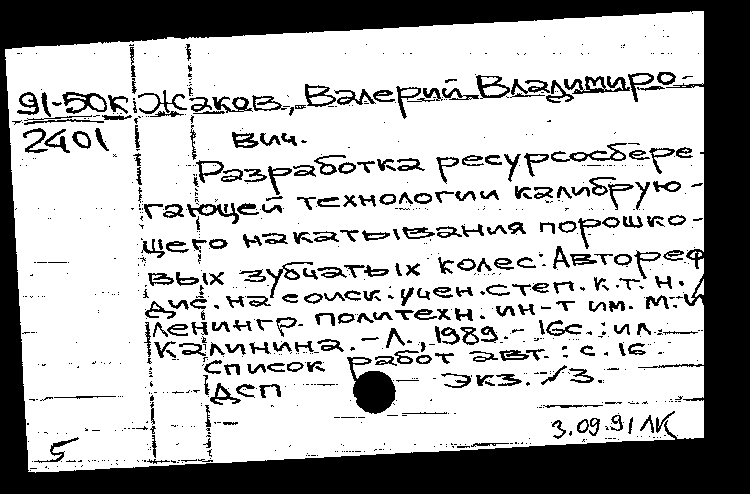 91-50к Жаков, Валерий Владимиро-
2401 вич.
Разработка ресурсосбере-
гающей технологии калибрую-
щего накатывания порошко-
вых зубчатых колес: Автореф
дис. на соиск. учен. степ. к.т.н. /
Ленингр. политехн. ин-т им. М.И
Калинина. - Л., 1989. - 16с.: ил.
Список работ авт.: с. 16.
ДСП экз. №3.
3.09.91 ЛК
5